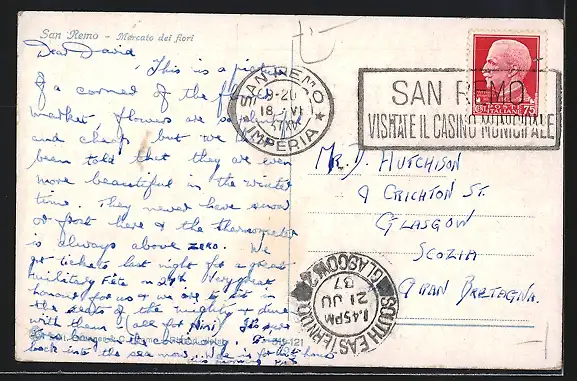 San Remo - Mercato dei fiori
Dear David
This is a picture
of a corner of the flower
market, flowers are so
and cheap but we have
been told that they are even
more beautiful in the winter
time. They never have snow
or frost here & the thermometer
is always above zero. We
got tickets last night for a great
Military Fête on 29th. Very great
honour for us & we are to sit in
the seats of the mighty & dine
with them (all for
back into the sea
SAN REMO
18 VI
IMPERIA
POSTE ITALIANE
75
SAN REMO
VISITATE IL CASINO MUNICIPALE
Mr. D. Hutchison
9 Crichton St.
Glasgow
Scozia
Gran Bretagna.
GLASGOW
1.45PM
21 JU
37
SOUTH EASTERN D.O.